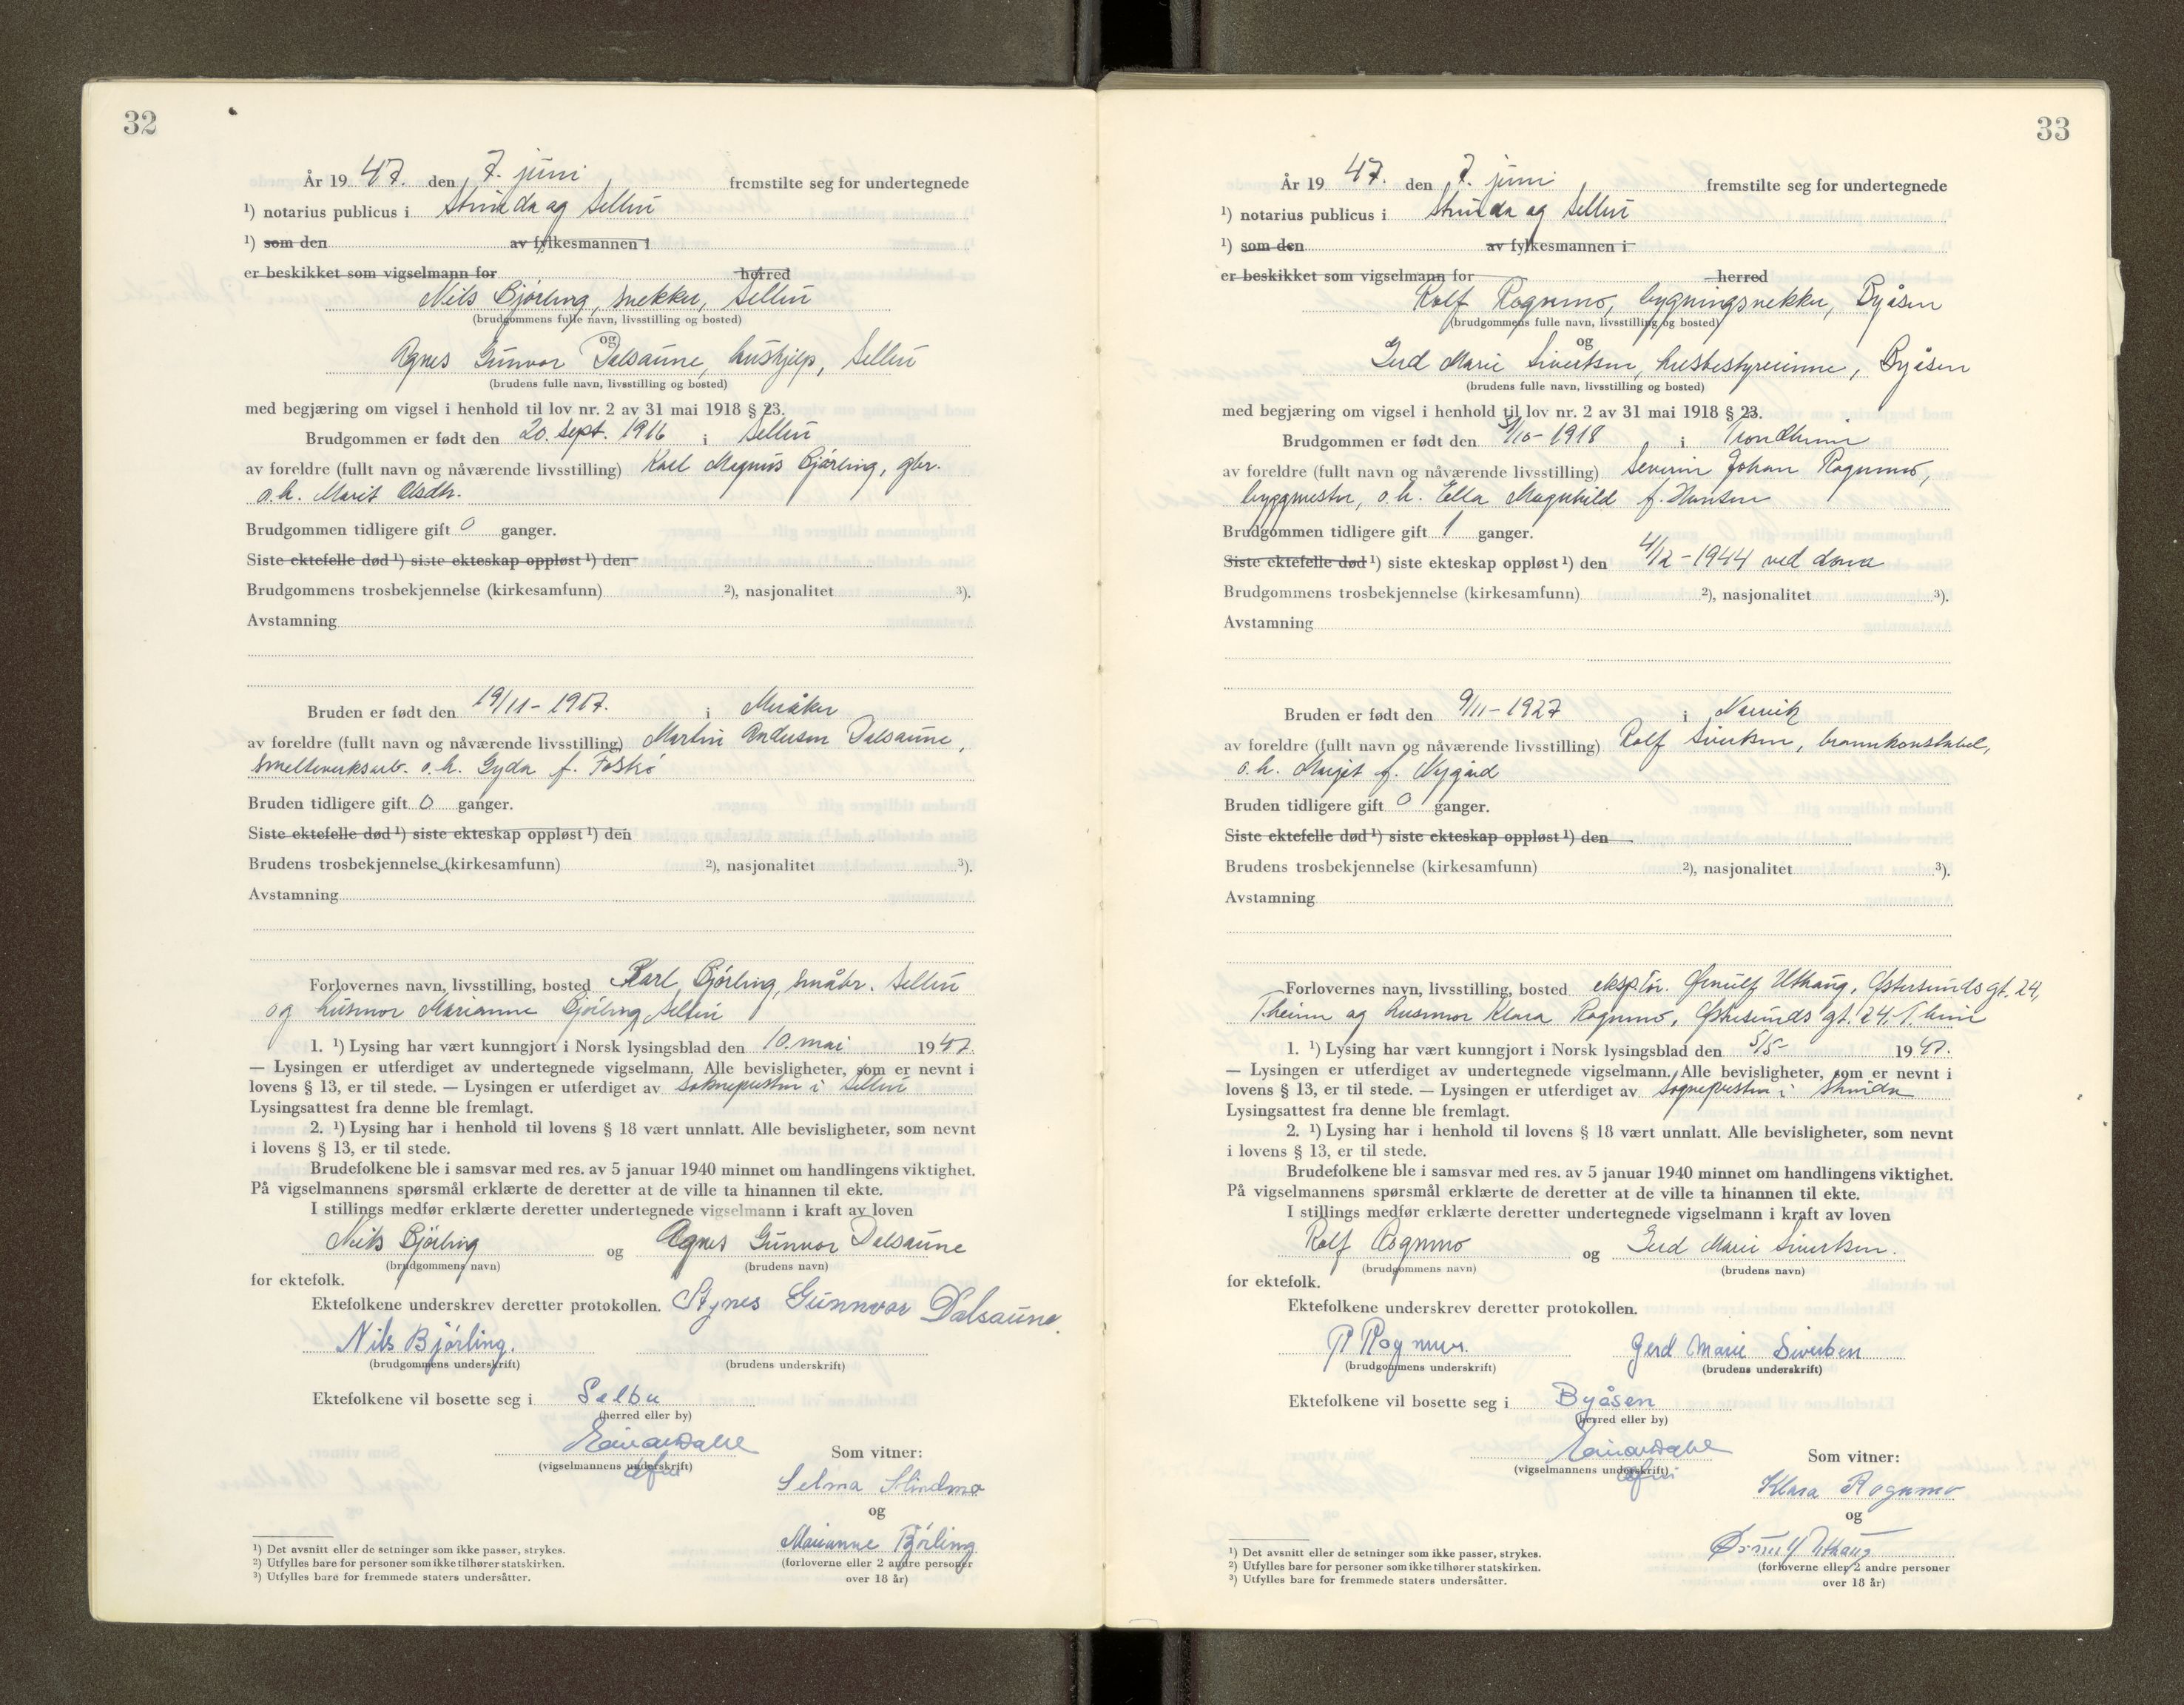 32
År 19 47. den 7. juni fremstilte seg for undertegnede
¹) notarius publicus i Strinda og Selbu
¹) som den av fylkesmannen i
er beskikket som vigselmann for herred
Nils Bjørling, snekker, Selbu
(brudgommens fulle navn, livsstilling og bosted)
og
Agnes Gunvor Dalsaune, hushjelp, Selbu
(brudens fulle navn, livsstilling og bosted)
med begjæring om vigsel i henhold til lov nr. 2 av 31 mai 1918 § 23.
Brudgommen er født den 20. sept. 1916 i Selbu
av foreldre (fullt navn og nåværende livsstilling) Karl Magnus Bjørling, gbr.
o.h. Marit Olsdtr.
Brudgommen tidligere gift 0 ganger.
Siste ektefelle død ¹) siste ekteskap oppløst ¹) den
Brudgommens trosbekjennelse (kirkesamfunn) ²), nasjonalitet ³).
Avstamning
Bruden er født den 19/11 - 1917. i Meråker
av foreldre (fullt navn og nåværende livsstilling) Martin Andersen Dalsaune,
smelteverksarb. o.h. Gyda f.
Bruden tidligere gift 0 ganger.
Siste ektefelle død ¹) siste ekteskap oppløst ¹) den
Brudens trosbekjennelse (kirkesamfunn) ²), nasjonalitet ³).
Avstamning
Forlovernes navn, livsstilling, bosted Karl Bjørling, småbr. Selbu
og husmor Marianne Bjørling, Selbu
1. ¹) Lysing har vært kunngjort i Norsk lysingsblad den 10. mai 1947.
— Lysingen er utferdiget av undertegnede vigselmann. Alle bevisligheter, som er nevnt i
lovens § 13, er til stede. — Lysingen er utferdiget av soknepresten i Selbu
Lysingsattest fra denne ble fremlagt.
2. ¹) Lysing har i henhold til lovens § 18 vært unnlatt. Alle bevisligheter, som nevnt
i lovens § 13, er til stede.
Brudefolkene ble i samsvar med res. av 5 januar 1940 minnet om handlingens viktighet.
På vigselmannens spørsmål erklærte de deretter at de ville ta hinannen til ekte.
I stillings medfør erklærte deretter undertegnede vigselmann i kraft av loven
Nils Bjørling og Agnes Gunvor Dalsaune
(brudgommens navn) (brudens navn)
for ektefolk.
Ektefolkene underskrev deretter protokollen. Agnes Gunnvor Dalsaune.
Nils Bjørling.
(brudgommens underskrift) (brudens underskrift)
Ektefolkene vil bosette seg i Selbu
(herred eller by)
Einar Dahl
(vigselmannens underskrift)
Som vitner:
Selma Slindmo
og
Marianne Bjørling
(forloverne eller 2 andre personer
over 18 år)
¹) Det avsnitt eller de setninger som ikke passer, strykes.
²) Utfylles bare for personer som ikke tilhører statskirken.
³) Utfylles bare for fremmede staters undersåtter.
33
År 19 47. den 7. juni fremstilte seg for undertegnede
¹) notarius publicus i Strinda og Selbu
¹) som den av fylkesmannen i
er beskikket som vigselmann for herred
Rolf Rognmo, bygningsnekker, Byåsen
(brudgommens fulle navn, livsstilling og bosted)
og
Gerd Marie Sivertsen, husbestyrerinne, Byåsen
(brudens fulle navn, livsstilling og bosted)
med begjæring om vigsel i henhold til lov nr. 2 av 31 mai 1918 § 23.
Brudgommen er født den /10 - 1918 i Trondheim
av foreldre (fullt navn og nåværende livsstilling) Severin Johan Rognmo,
byggmester, o.h. Ella Magnhild f. Hansen
Brudgommen tidligere gift 1 ganger.
Siste ektefelle død ¹) siste ekteskap oppløst ¹) den 4/12 - 1944 ved dom
Brudgommens trosbekjennelse (kirkesamfunn) ²), nasjonalitet ³).
Avstamning
Bruden er født den 9/11 - 1927 i Narvik
av foreldre (fullt navn og nåværende livsstilling) Rolf Sivertsen, brannkonstabel,
o.h. Margit f. Nygård
Bruden tidligere gift 0 ganger.
Siste ektefelle død ¹) siste ekteskap oppløst ¹) den
Brudens trosbekjennelse (kirkesamfunn) ²), nasjonalitet ³).
Avstamning
Forlovernes navn, livsstilling, bosted eksp.før. Ørnulf Uthaug, Østersunds gt. 24,
T.heim og husmor Klara Rognmo, Østersunds gt. 24. T.heim
1. ¹) Lysing har vært kunngjort i Norsk lysingsblad den 5/5 - 1947.
— Lysingen er utferdiget av undertegnede vigselmann. Alle bevisligheter, som er nevnt i
lovens § 13, er til stede. — Lysingen er utferdiget av sognepresten i Strinda
Lysingsattest fra denne ble fremlagt.
2. ¹) Lysing har i henhold til lovens § 18 vært unnlatt. Alle bevisligheter, som nevnt
i lovens § 13, er til stede.
Brudefolkene ble i samsvar med res. av 5 januar 1940 minnet om handlingens viktighet.
På vigselmannens spørsmål erklærte de deretter at de ville ta hinannen til ekte.
I stillings medfør erklærte deretter undertegnede vigselmann i kraft av loven
Rolf Rognmo og Gerd Marie Sivertsen.
(brudgommens navn) (brudens navn)
for ektefolk.
Ektefolkene underskrev deretter protokollen.
R Rognmo. Gerd Marie Sivertsen
(brudgommens underskrift) (brudens underskrift)
Ektefolkene vil bosette seg i Byåsen
(herred eller by)
Einar Dahl
(vigselmannens underskrift)
Som vitner:
Klara Rognmo
og
Ørnulf Uthaug
(forloverne eller 2 andre personer
over 18 år)
¹) Det avsnitt eller de setninger som ikke passer, strykes.
²) Utfylles bare for personer som ikke tilhører statskirken.
³) Utfylles bare for fremmede staters undersåtter.